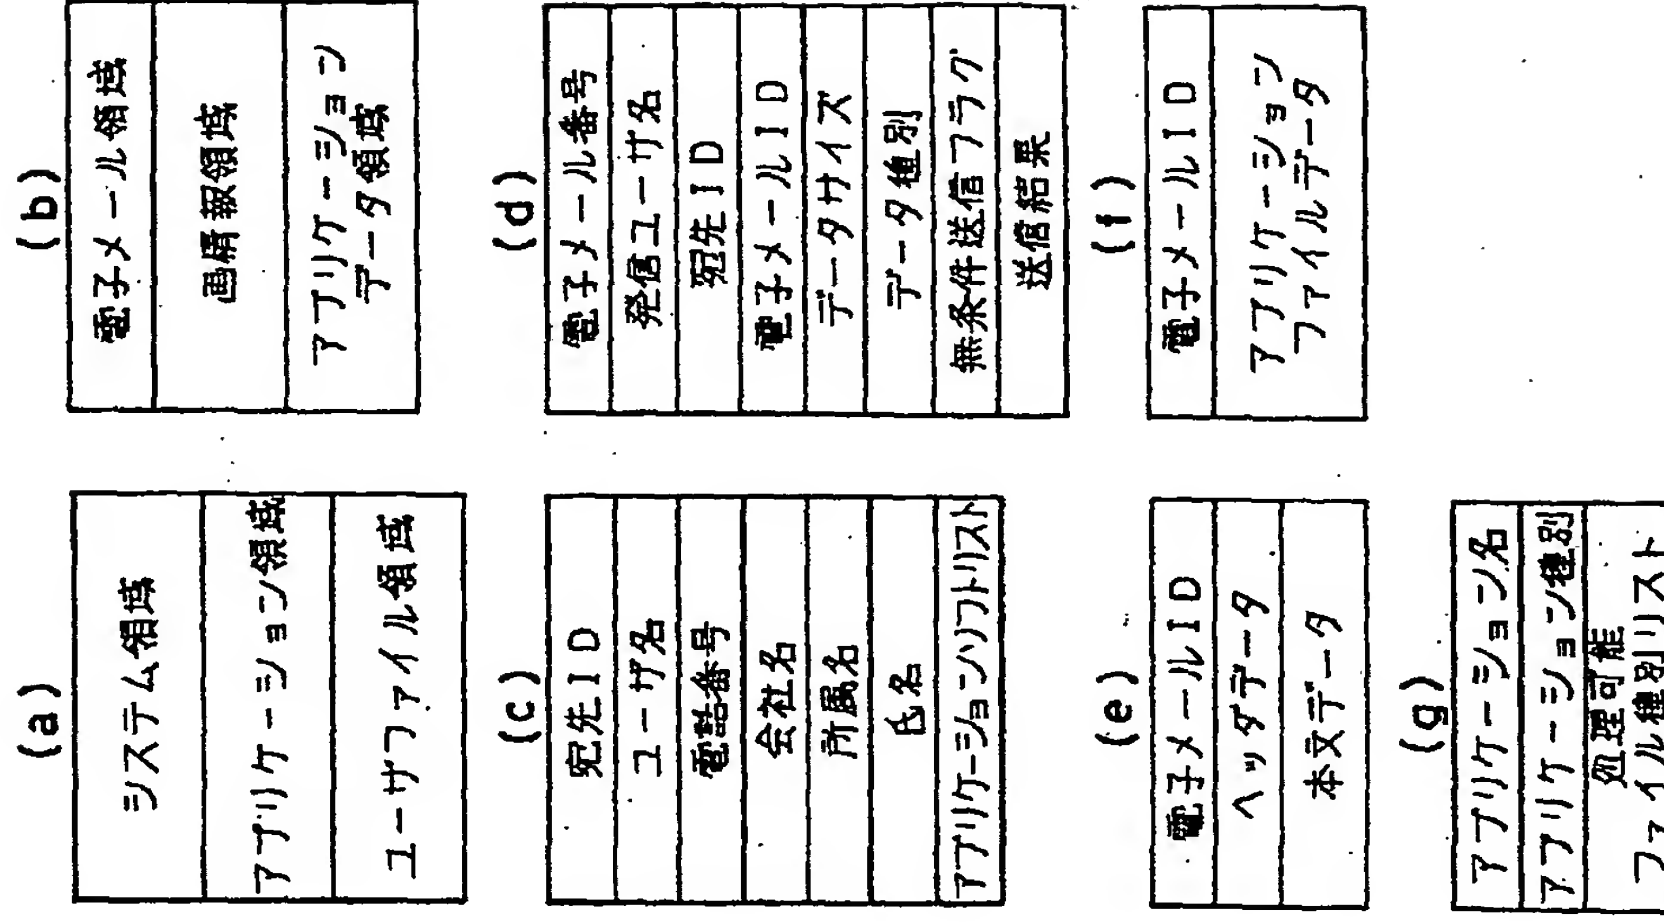 (a)
システム領域
アプリケーション領域
ユーザファイル領域
(b)
電子メール領域
画情報領域
アプリケーション
データ領域
(c)
宛先ID
ユーザ名
電話番号
会社名
所属名
氏名
アプリケーションソフトリスト
(d)
電子メール番号
発信ユーザ名
宛先ID
電子メールID
データサイズ
データ種別
無条件送信フラグ
送信結果
(e)
電子メールID
ヘッダデータ
本文データ
(f)
電子メールID
アプリケーション
ファイルデータ
(g)
アプリケーション名
アプリケーション種別
処理可能
ファイル種別リスト